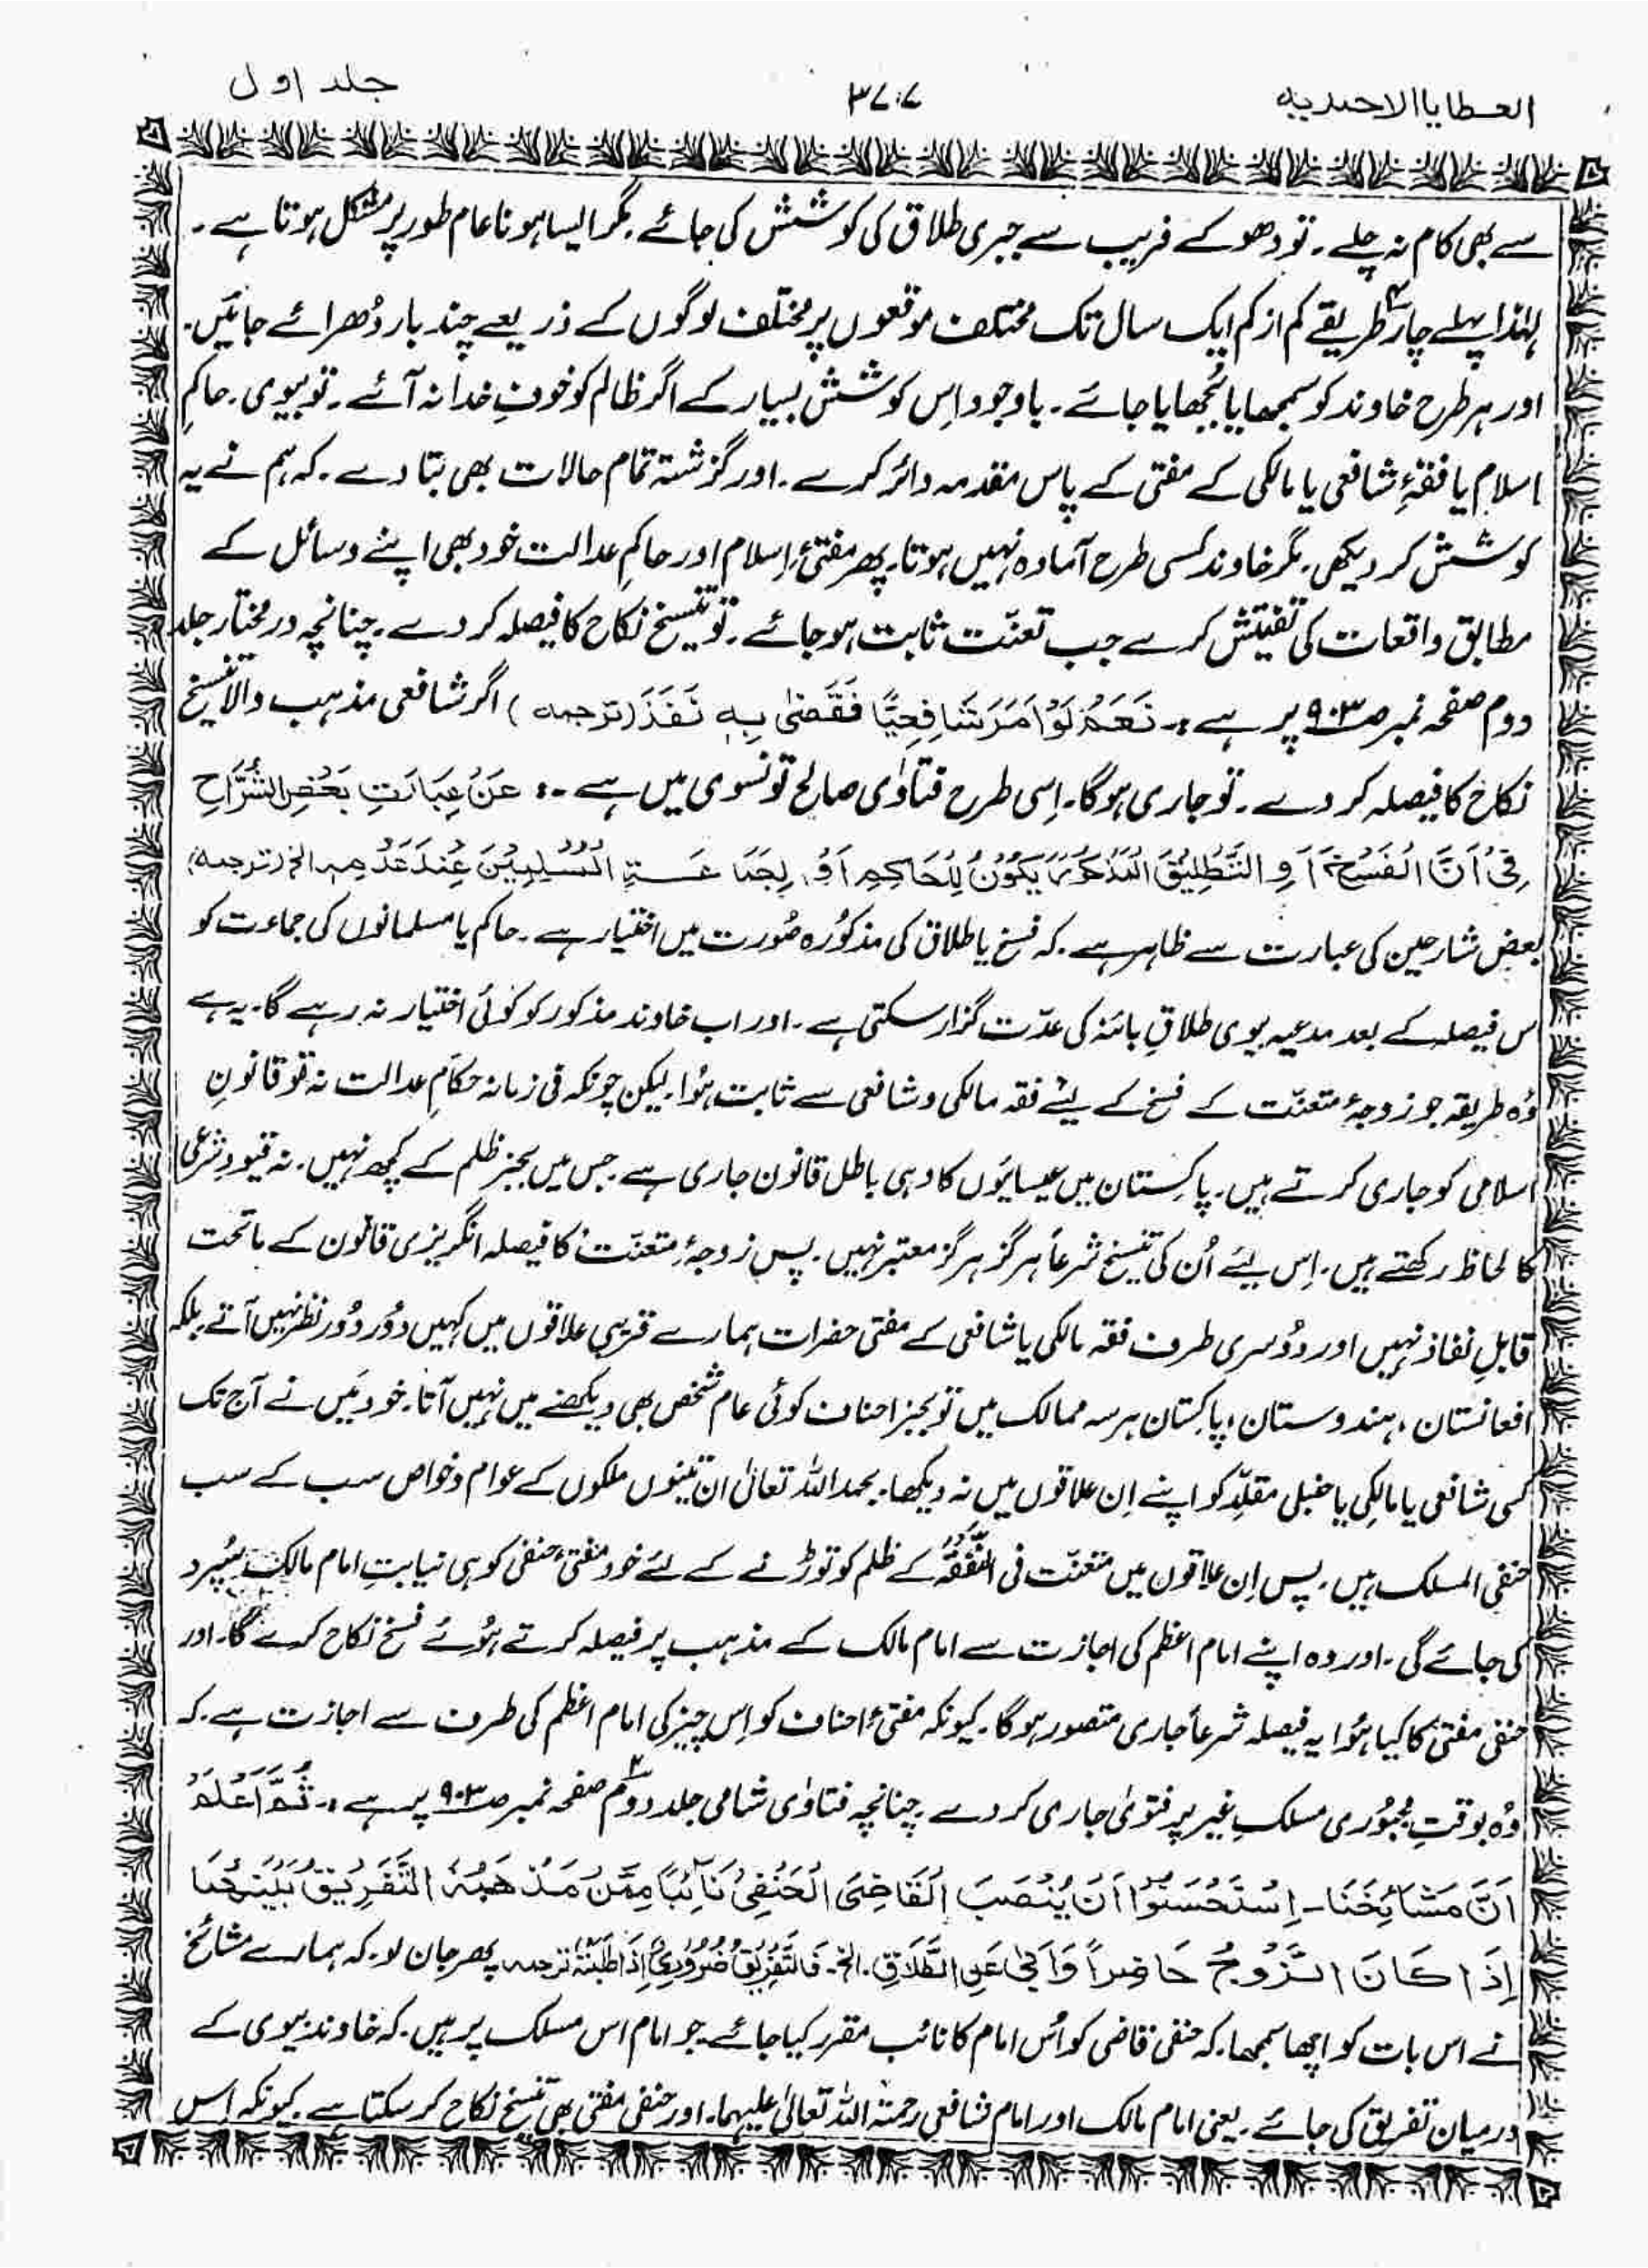 العطایا الاحمدیہ
۳۷۷
جلد اول
سے بھی کام نہ چلے۔ تو دھوکے فریب سے جبری طلاق کی کوشش کی جائے۔ مگر ایسا ہونا عام طور پر مشکل ہوتا ہے۔
لہٰذا پہلے چار۴ طریقے کم از کم ایک سال تک مختلف موقعوں پر مختلف لوگوں کے ذریعے چند بار دُھرائے جائیں۔
اور ہر طرح خاوند کو سمجھایا بُجھایا جائے۔ باوجود اِس کوشش بسیار کے اگر ظالم کو خوفِ خدا نہ آئے۔ تو بیوی۔ حاکمِ
اسلام یا فقۂِ شافعی یا مالکی کے مفتی کے پاس مقدمہ دائر کرے۔ اور گزشتہ تمام حالات بھی بتا دے۔ کہ ہم نے یہ
کوشش کر دیکھی۔ مگر خاوند کسی طرح آمادہ نہیں ہوتا۔ پھر مفتیٔ اِسلام اور حاکمِ عدالت خود بھی اپنے وسائل کے
مطابق واقعات کی تفتیش کرے جب تعنّت ثابت ہو جائے۔ تو تنسیخ نکاح کا فیصلہ کر دے۔ چنانچہ در مختار جلد
دوم صفحہ نمبر صـ۹۰۳ پر ہے:۔ نَعَمْ لَوْ اَمَرَ شَافِعِیًّا فَقَضٰی بِہٖ نَفَذَ (ترجمہ) اگر شافعی مذہب والا تنسیخ
نکاح کا فیصلہ کر دے۔ تو جاری ہوگا۔ اِسی طرح فتاوٰی صالح تونسوی میں ہے۔: عَنْ عِبَارَتِ بَعْضِ الشُّرَّاحِ
فِیْ اَنَّ الْفَسْخَ اَوِ التَّطْلِیْقَ الْمَذْکُوْرَ یَکُوْنُ لِلْحَاکِمِ اَوْ لِجَمَاعَۃِ الْمُسْلِمِیْنَ عِنْدَ عَدْمِہٖ الخ (ترجمہ)
بعض شارحین کی عبارت سے ظاہر ہے۔ کہ فسخ یا طلاق کی مذکُورہ صُورت میں اختیار ہے۔ حاکم یا مسلمانوں کی جماعت کو
س فیصلہ کے بعد مدعیہ بیوی طلاقِ بائنہ کی عدّت گزار سکتی ہے۔ اور اب خاوند مذکور کو کوئی اختیار نہ رہے گا۔ یہ ہے
وُہ طریقہ جو زوجۂ متعنّت کے فسخ کے لیئے فقہ مالکی و شافعی سے ثابت ہُوا۔ لیکن چونکہ فی زمانہ حکّامِ عدالت نہ تو قانونِ
اسلامی کو جاری کرتے ہیں۔ پاکستان میں عیسائیوں کا وہی باطل قانون جاری ہے۔ جس میں بجز ظلم کے کچھ نہیں۔ نہ قیودِ شرعی
کا لحاظ رکھتے ہیں۔ اِس لیئے اُن کی تنسیخ شرعاً ہرگز ہرگز معتبر نہیں۔ پس زوجۂِ متعنّت کا فیصلہ انگریزی قانون کے ماتحت
قابلِ نفاذ نہیں اور دُوسری طرف فقہ مالکی یا شافعی کے مفتی حضرات ہمارے قریبی علاقوں میں کہیں دُور دُور نظر نہیں آتے۔ بلکہ
افغانستان، ہندوستان، پاکستان ہر سہ ممالک میں تو بجز احناف کوئی عام شخص بھی دیکھنے میں نہیں آتا۔ خود مَیں نے آج تک
کسی شافعی یا مالِکی یا حنبلی مقلّد کو اپنے اِن علاقوں میں نہ دیکھا۔ بحمد اللہ تعالیٰ ان تینوں ملکوں کے عوام و خواص سب کے سب
حنفی المسلک ہیں۔ پس اِن علاقوں میں متعنّت فی النَّفَقَہ کے ظلم کو توڑنے کے لئے خود مفتیٔ حنفی کو ہی نیابتِ امام مالک سپُرد
کی جائے گی۔ اور وہ اپنے امام اعظم کی اجازت سے امام مالک کے مذہب پر فیصلہ کرتے ہُوئے فسخ نکاح کرے گا۔ اور
حنفی مفتی کا کیا ہُوا یہ فیصلہ شرعاً جاری متصور ہوگا۔ کیونکہ مفتیٔ احناف کو اِس چیز کی امام اعظم کی طرف سے اجازت ہے۔ کہ
وُہ بوقتِ مجبُوری مسلکِ غیر پر فتویٰ جاری کر دے۔ چنانچہ فتاوٰی شامی جلد دوم۲ صفحہ نمبر صـ۹۰۳ پر ہے:۔ ثُمَّ اعْلَمْ
اَنَّ مَشَائِخَنَا۔ اِسْتَحْسَنُوْا اَنْ یُنْصَبَ الْقَاضِیَ الْحَنْفِیُّ نَائِبًا مِمَّنْ مَذْھَبُہٗ التَّفْرِیْقُ بَیْنَھُمَا
اِذَا کَانَ الزَّوْجُ حَاضِراً وَ اَبٰی عَنِ الطَّلَاقِ۔ الخ۔ فَالتَّفْرِیْقُ ضَرُوْرِیٌّ اِذَا طَلَبَتْہُ ترجمہ پھر جان لو۔ کہ ہمارے مشائخ
نے اس بات کو اچھا سمجھا۔ کہ حنفی قاضی کو اُس امام کا نائب مقرر کیا جائے۔ جو امام اس مسلک پر ہیں۔ کہ خاوند بیوی کے
درمیان تفریق کی جائے۔ یعنی امام مالک اور امام شافعی رحمتہ اللہ تعالیٰ علیہما۔ اور حنفی مفتی بھی تنسیخ نکاح کر سکتا ہے۔ کیونکہ اس